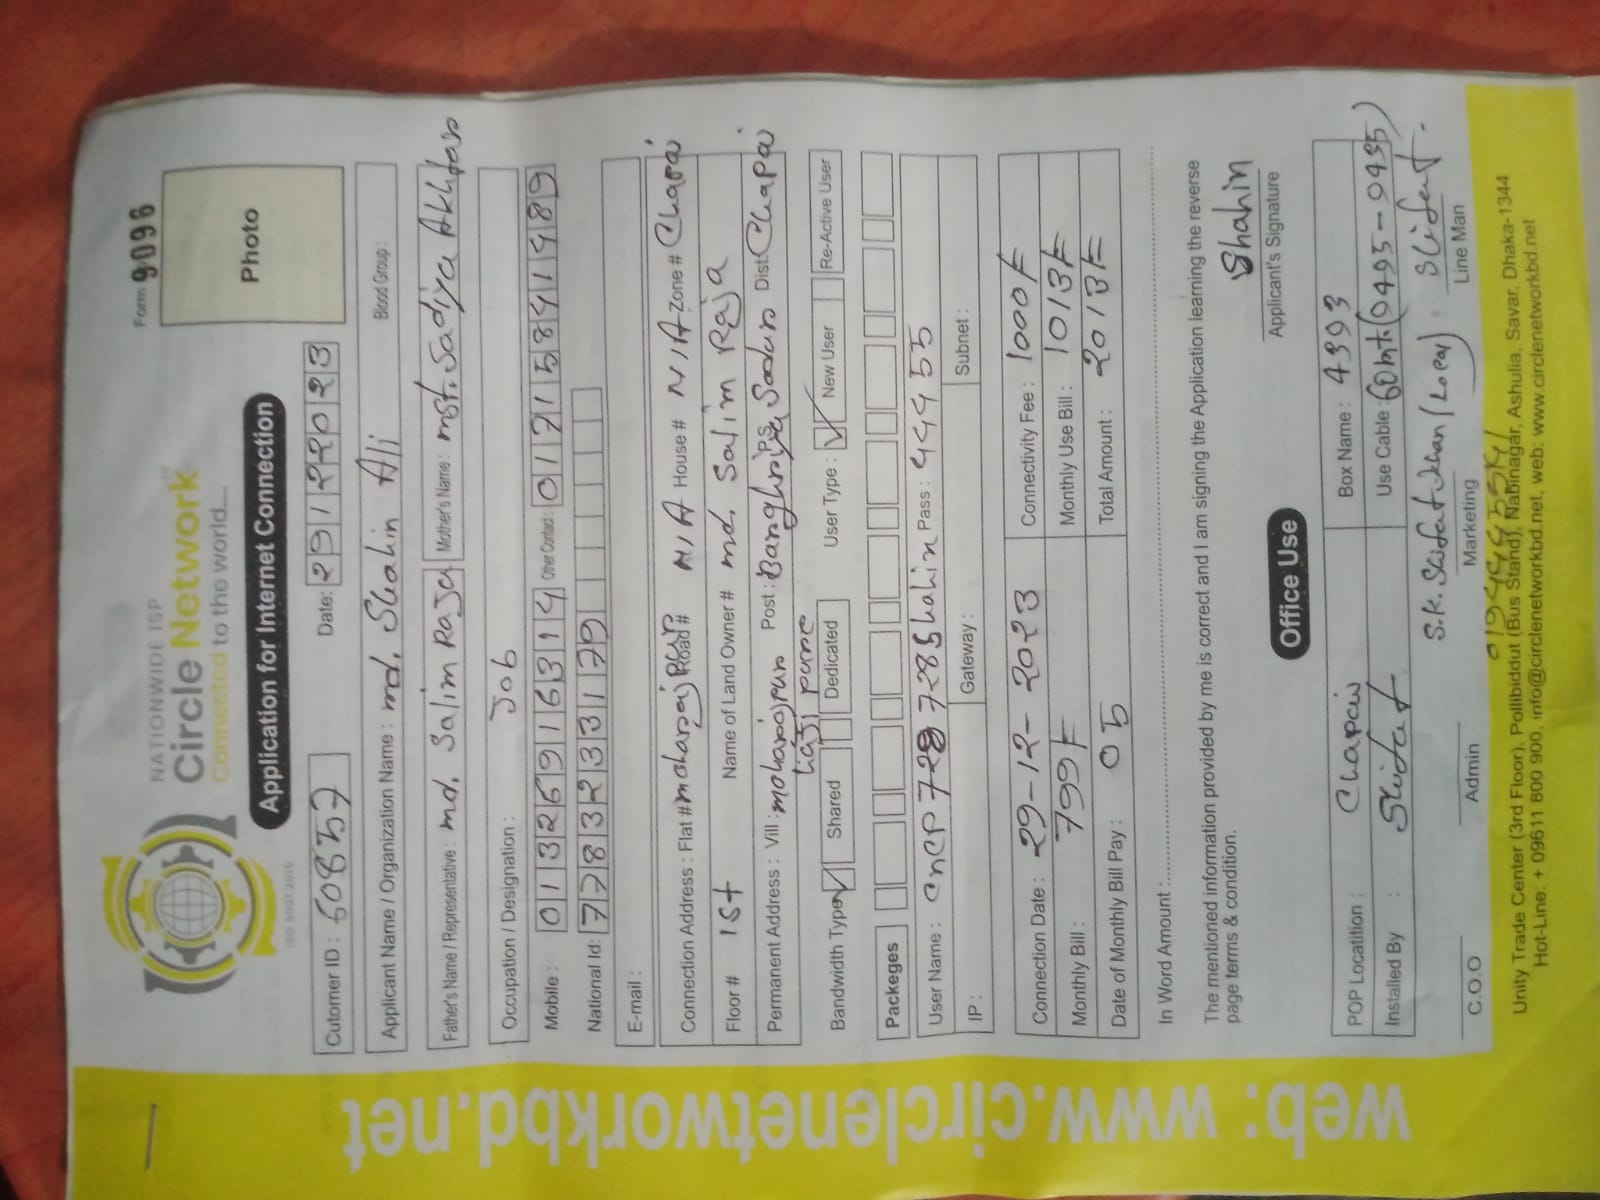 NATIONWIDE ISP
Circle Network
Connected to the world....
ISO 9001:2015
Form 9096
Photo
Application for Internet Connection
Cutomer ID : 60857 Date: 29122023
Applicant Name / Organization Name : md. Shahin Ali Blood Group:
Father's Name / Representative : md. Salim Raja Mother's Name : mst. Sadiya Akhtar
Occupation / Designation : Job
Mobile : 01326916314 Other Contact : 01715841489
National Id: 7783233179
E-mail :
Connection Address : Flat # moharajpur Road # N/A House # N/A Zone # Chapai
Floor # 1st Name of Land Owner # md. Salim Raja
Permanent Address : Vill : moharajpur Post : P.S Sadar Dist Chapai
Bandwidth Type Shared Dedicated User Type : New User Re-Active User
Packeges
User Name : cncp 728 7285hahin Pass : 444 55
IP : Gateway : Subnet :
Connection Date : 29-12-2023 Connectivity Fee : 1000
Monthly Bill : 799 Monthly Use Bill : 1013
Date of Monthly Bill Pay : 05 Total Amount : 2013
In Word Amount :
The mentioned information provided by me is correct and I am signing the Application learning the reverse
page terms & condition.
Shahin
Applicant's Signature
Office Use
POP Locatition : Chapai Box Name : 4393
Installed By : Use Cable : 60mt (0495-0435)
C.O.O Admin Marketing Line Man
Unity Trade Center (3rd Floor), Pollibiddut (Bus Stand), Nabinagar, Ashulia, Savar, Dhaka-1344
Hot-Line: + 09611 800 900, info@circlenetworkbd.net, web: www.circlenetworkbd.net
web: www.circlenetworkbd.net